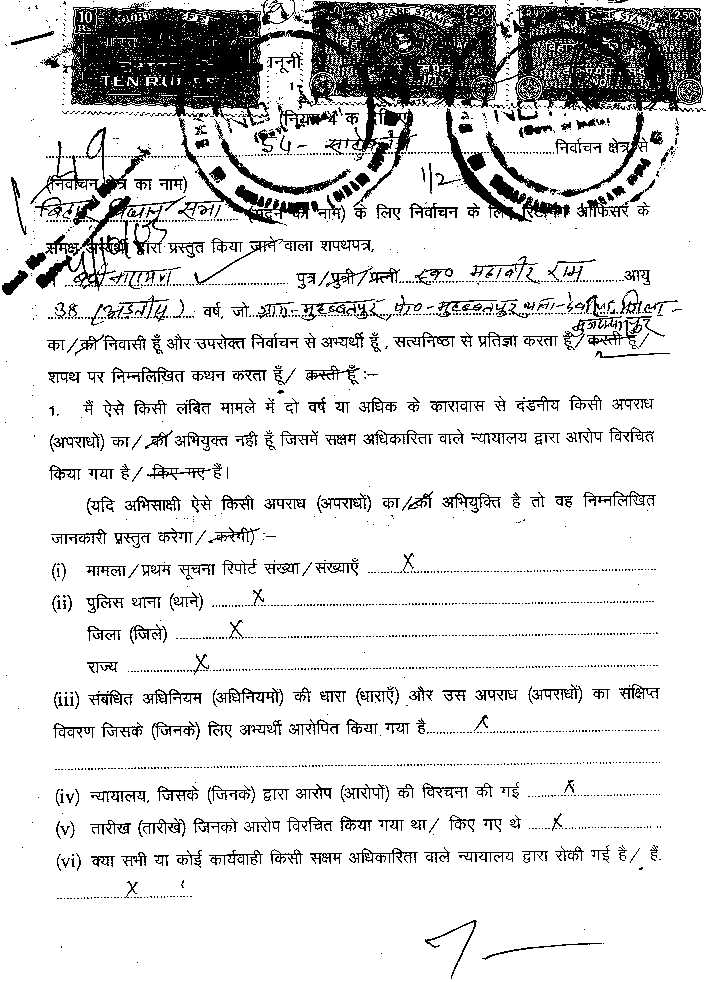 10
TEN RUPEES
250
250
कानूनी
(नियम 4 क देखिए)
49
54- निर्वाचन क्षेत्र से
(निर्वाचन क्षेत्र का नाम)
1/2
बिहार विधान सभा (सदन का नाम) के लिए निर्वाचन के लिए रिटर्निंग ऑफिसर के
समक्ष अभ्यर्थी द्वारा प्रस्तुत किया जाने वाला शपथपत्र,
पुत्र/पुत्री/पत्नी स्व० महावीर राम आयु
38 (अड़तीस) वर्ष, जो ग्राम-मुहब्बतपुर पो०-मुहब्बतपुर थाना- जिला-
मुजफ्फरपुर
का/की निवासी हूँ और उपरोक्त निर्वाचन से अभ्यर्थी हूँ, सत्यनिष्ठा से प्रतिज्ञा करता हूँ/ करती हूँ/
शपथ पर निम्नलिखित कथन करता हूँ/ करती हूँ:-
1. मैं ऐसे किसी लंबित मामले में दो वर्ष या अधिक के कारावास से दंडनीय किसी अपराध
(अपराधों) का/ की अभियुक्त नही हूँ जिसमें सक्षम अधिकारिता वाले न्यायालय द्वारा आरोप विरचित
किया गया है/ किए गए हैं।
(यदि अभिसाक्षी ऐसे किसी अपराध (अपराधों) का/की अभियुक्ति है तो वह निम्नलिखित
जानकारी प्रस्तुत करेगा/ करेगी):-
(i) मामला/प्रथम सूचना रिपोर्ट संख्या/संख्याएँ X
(ii) पुलिस थाना (थाने) X
जिला (जिले) X
राज्य X
(iii) संबंधित अधिनियम (अधिनियमों) की धारा (धाराएँ) और उस अपराध (अपराधों) का संक्षिप्त
विवरण जिसके (जिनके) लिए अभ्यर्थी आरोपित किया गया है X
(iv) न्यायालय, जिसके (जिनके) द्वारा आरोप (आरोपों) की विरचना की गई X
(v) तारीख (तारीखें) जिनको आरोप विरचित किया गया था/ किए गए थे X
(vi) क्या सभी या कोई कार्यवाही किसी सक्षम अधिकारिता वाले न्यायालय द्वारा रोकी गई है/ हैं.
X